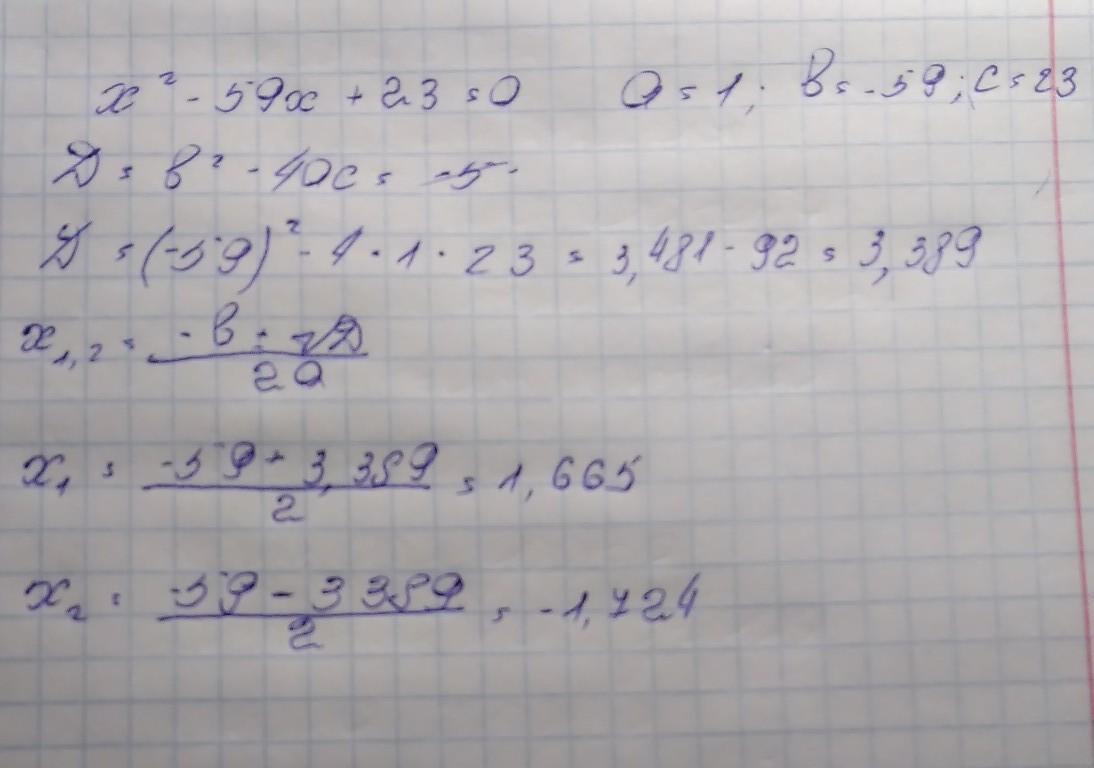 x² - 59x + 23 = 0 a = 1; b = -59; c = 23
D = b² - 4ac =
D = (-59)² - 4 · 1 · 23 = 3,481 - 92 = 3,389
x₁,₂ = (-b ± √D) / 2a
x₁ = (-59 + 3,389) / 2 = 1,665
x₂ = (-59 - 3 389) / 2 = -1,724